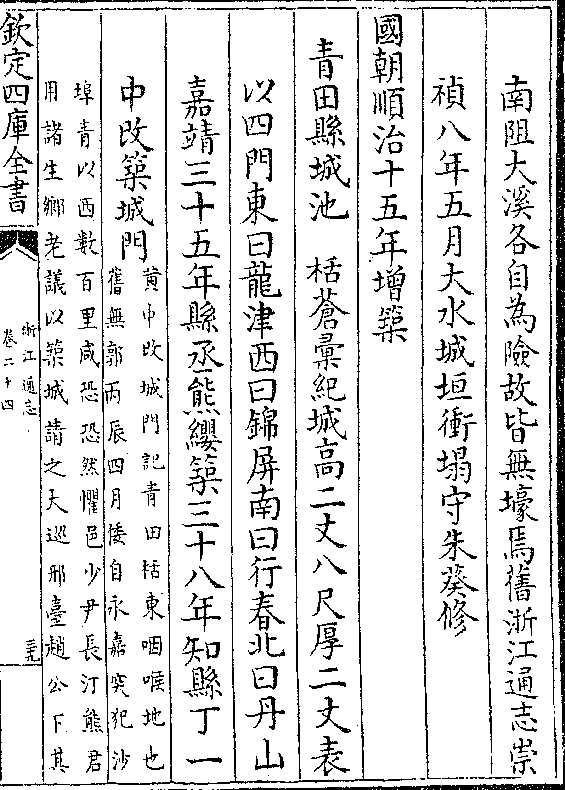 南阻大溪各自為險故皆無壕焉舊浙江通志崇
禎八年五月大水城垣衝塌守朱葵修
國朝順治十五年增築
青田縣城池　栝蒼彙紀城高二丈八尺厚二丈表
以四門東曰龍津西曰錦屏南曰行春北曰丹山
嘉靖三十五年縣丞熊纓築三十八年知縣丁一
中改築城門
黄中改城門記青田栝東咽喉地也
舊無郭丙辰四月倭自永嘉突犯沙
埠青以西數百里咸恐恐然懼邑少尹長汀熊君
用諸生鄉老議以築城請之大巡邢臺趙公下其
欽定四庫全書
浙江通志
卷二十四